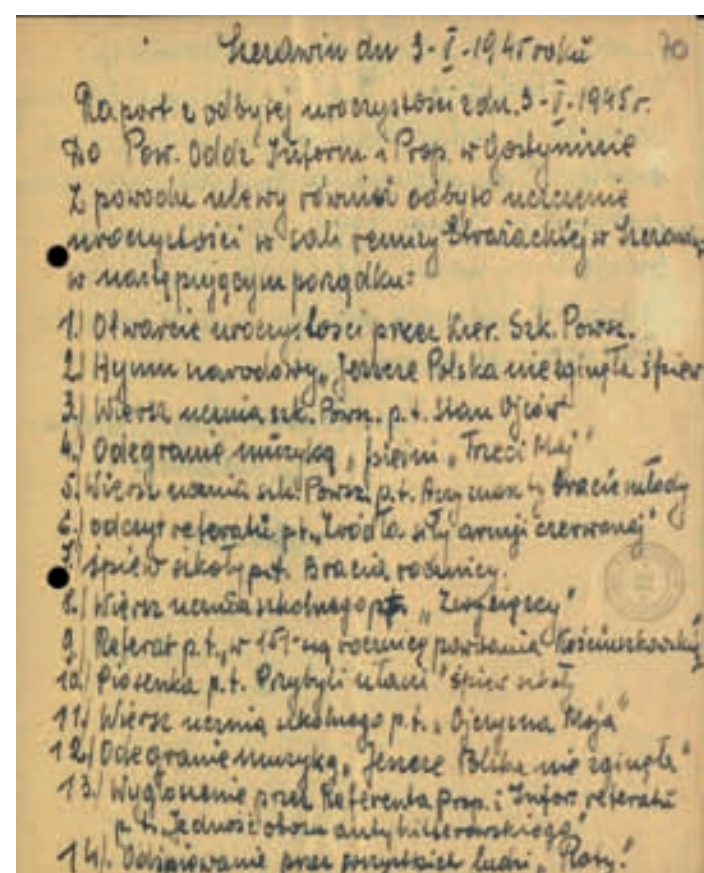 Szczawin dn 3-V-1945 roku 70
Raport z odbytej uroczystości z dn. 3-V-1945 r.
Do Pow. Oddz Inform i Prop. w Gostyninie
Z powodu ulewy również odbyło uczczenie
uroczystości w sali remizy Strażackiej w
w następującym porządku:
1.) Otwarcie uroczystości przez Kier. Szk. Powsz.
2.) Hymn narodowy „Jeszcze Polska nie zginęła śpiew
3.) Wiersz ucznia szk. Powsz. p.t. Ojców
4.) Odegranie muzyką „pieśni „Trzeci Maj"
5. Wiersz ucznia szk. Powsz. p.t. Czy znasz ty bracie młody
6.) odczyt referatu pt. „Źródła siły armji czerwonej"
7.) śpiew szkoły p.t. Bracia rodznicy.
8.) Wiersz ucznia szkolnego p.t. „Zwycięzcy"
9.) Referat p.t. „w 151-ną rocznicę powstania Kościuszkowskiej
10.) Piosenka p.t. Przybyli ułani" śpiew szkoły
11.) Wiersz ucznia szkolnego p.t. „Ojczyzna Moja"
12.) Odegranie muzyką „Jeszcze Polska nie zginęła"
13.) Wygłoszenie przez Referenta Prop. i Infor. referatu
p.t. „Jedność obozu antyhitlerowskiego"
14). Odśpiewanie przez wszystkich ludzi „Roty."